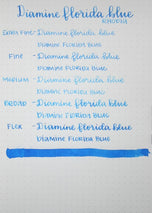 Diamine florida blue
RHODIA
EXTRA FINE - Diamine florida blue
DIAMINE FLORIDA BLUE
FINE - Diamine florida blue
DIAMINE FLORIDA BLUE
MEDIUM - Diamine florida blue
DIAMINE FLORIDA BLUE
BROAD - Diamine florida blue
DIAMINE FLORIDA BLUE
FLEX - Diamine florida blue
DIAMINE FLORIDA BLUE